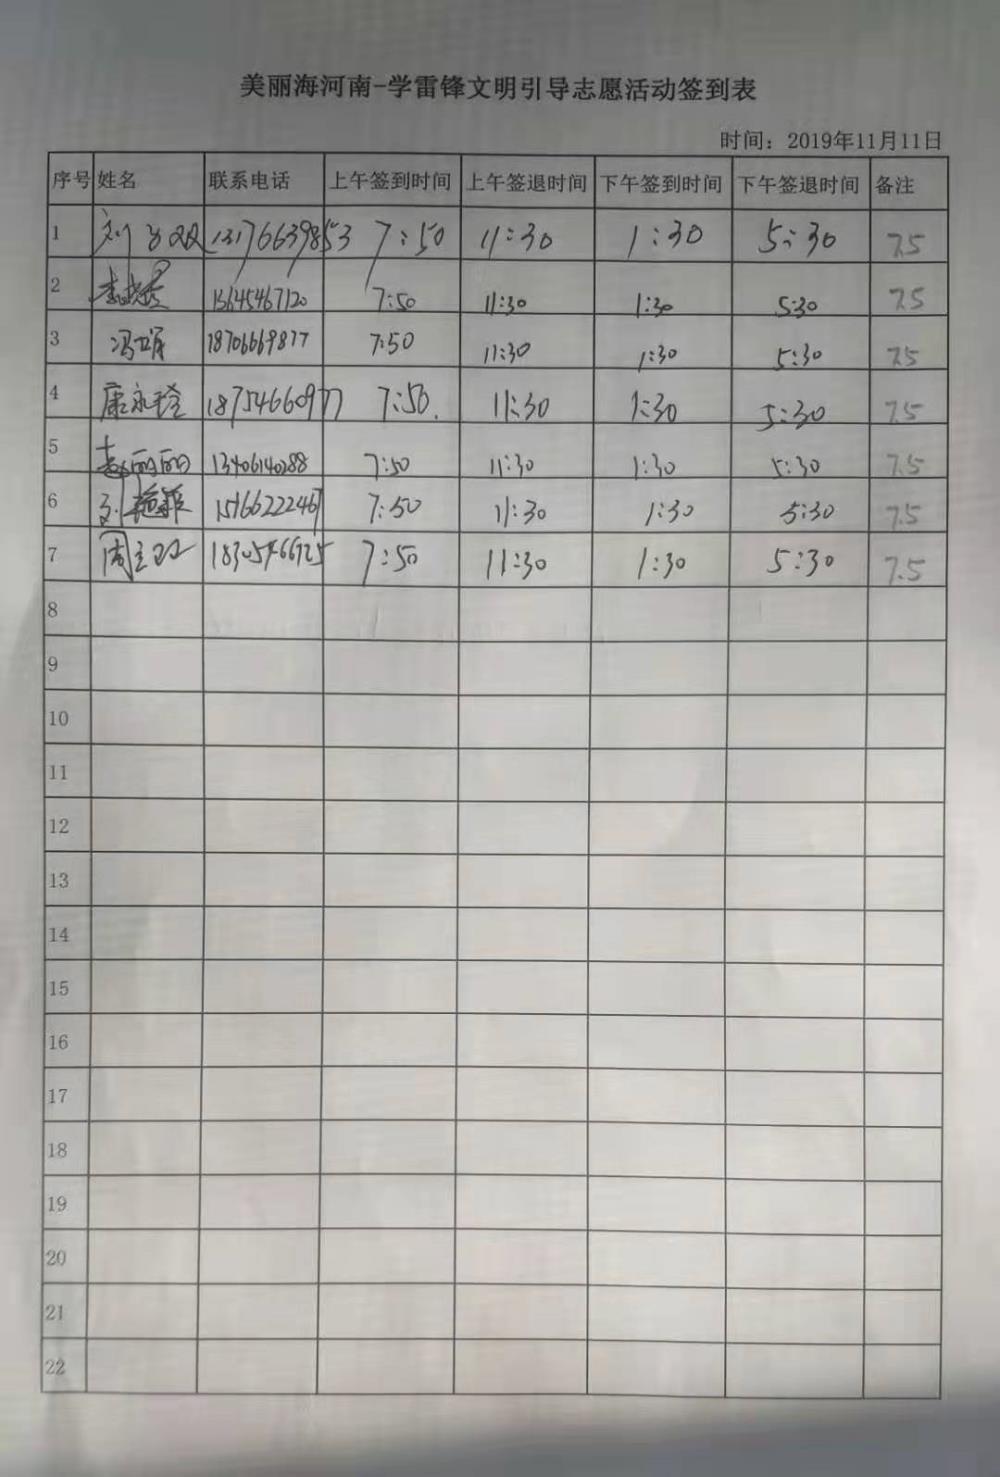 美丽海河南-学雷锋文明引导志愿活动签到表
时间：2019年11月11日
序号 姓名 联系电话 上午签到时间 上午签退时间 下午签到时间 下午签退时间 备注
1 刘 双 13176639853 7:50 11:30 1:30 5:30 7.5
2 13645467120 7:50 11:30 1:30 5:30 7.5
3 冯娟 18706669877 7:50 11:30 1:30 5:30 7.5
4 康永玲 18754660977 7:50 11:30 1:30 5:30 7.5
5 袁丽丽 13406140288 7:50 11:30 1:30 5:30 7.5
6 刘艳菲 15166222467 7:50 11:30 1:30 5:30 7.5
7 周 7:50 11:30 1:30 5:30 7.5
8
9
10
11
12
13
14
15
16
17
18
19
20
21
22